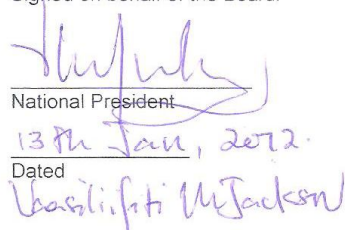 Signed on behalf of the Board:
National President
13th Jan, 2012.
Dated
Vaasiliifiti M Jackson